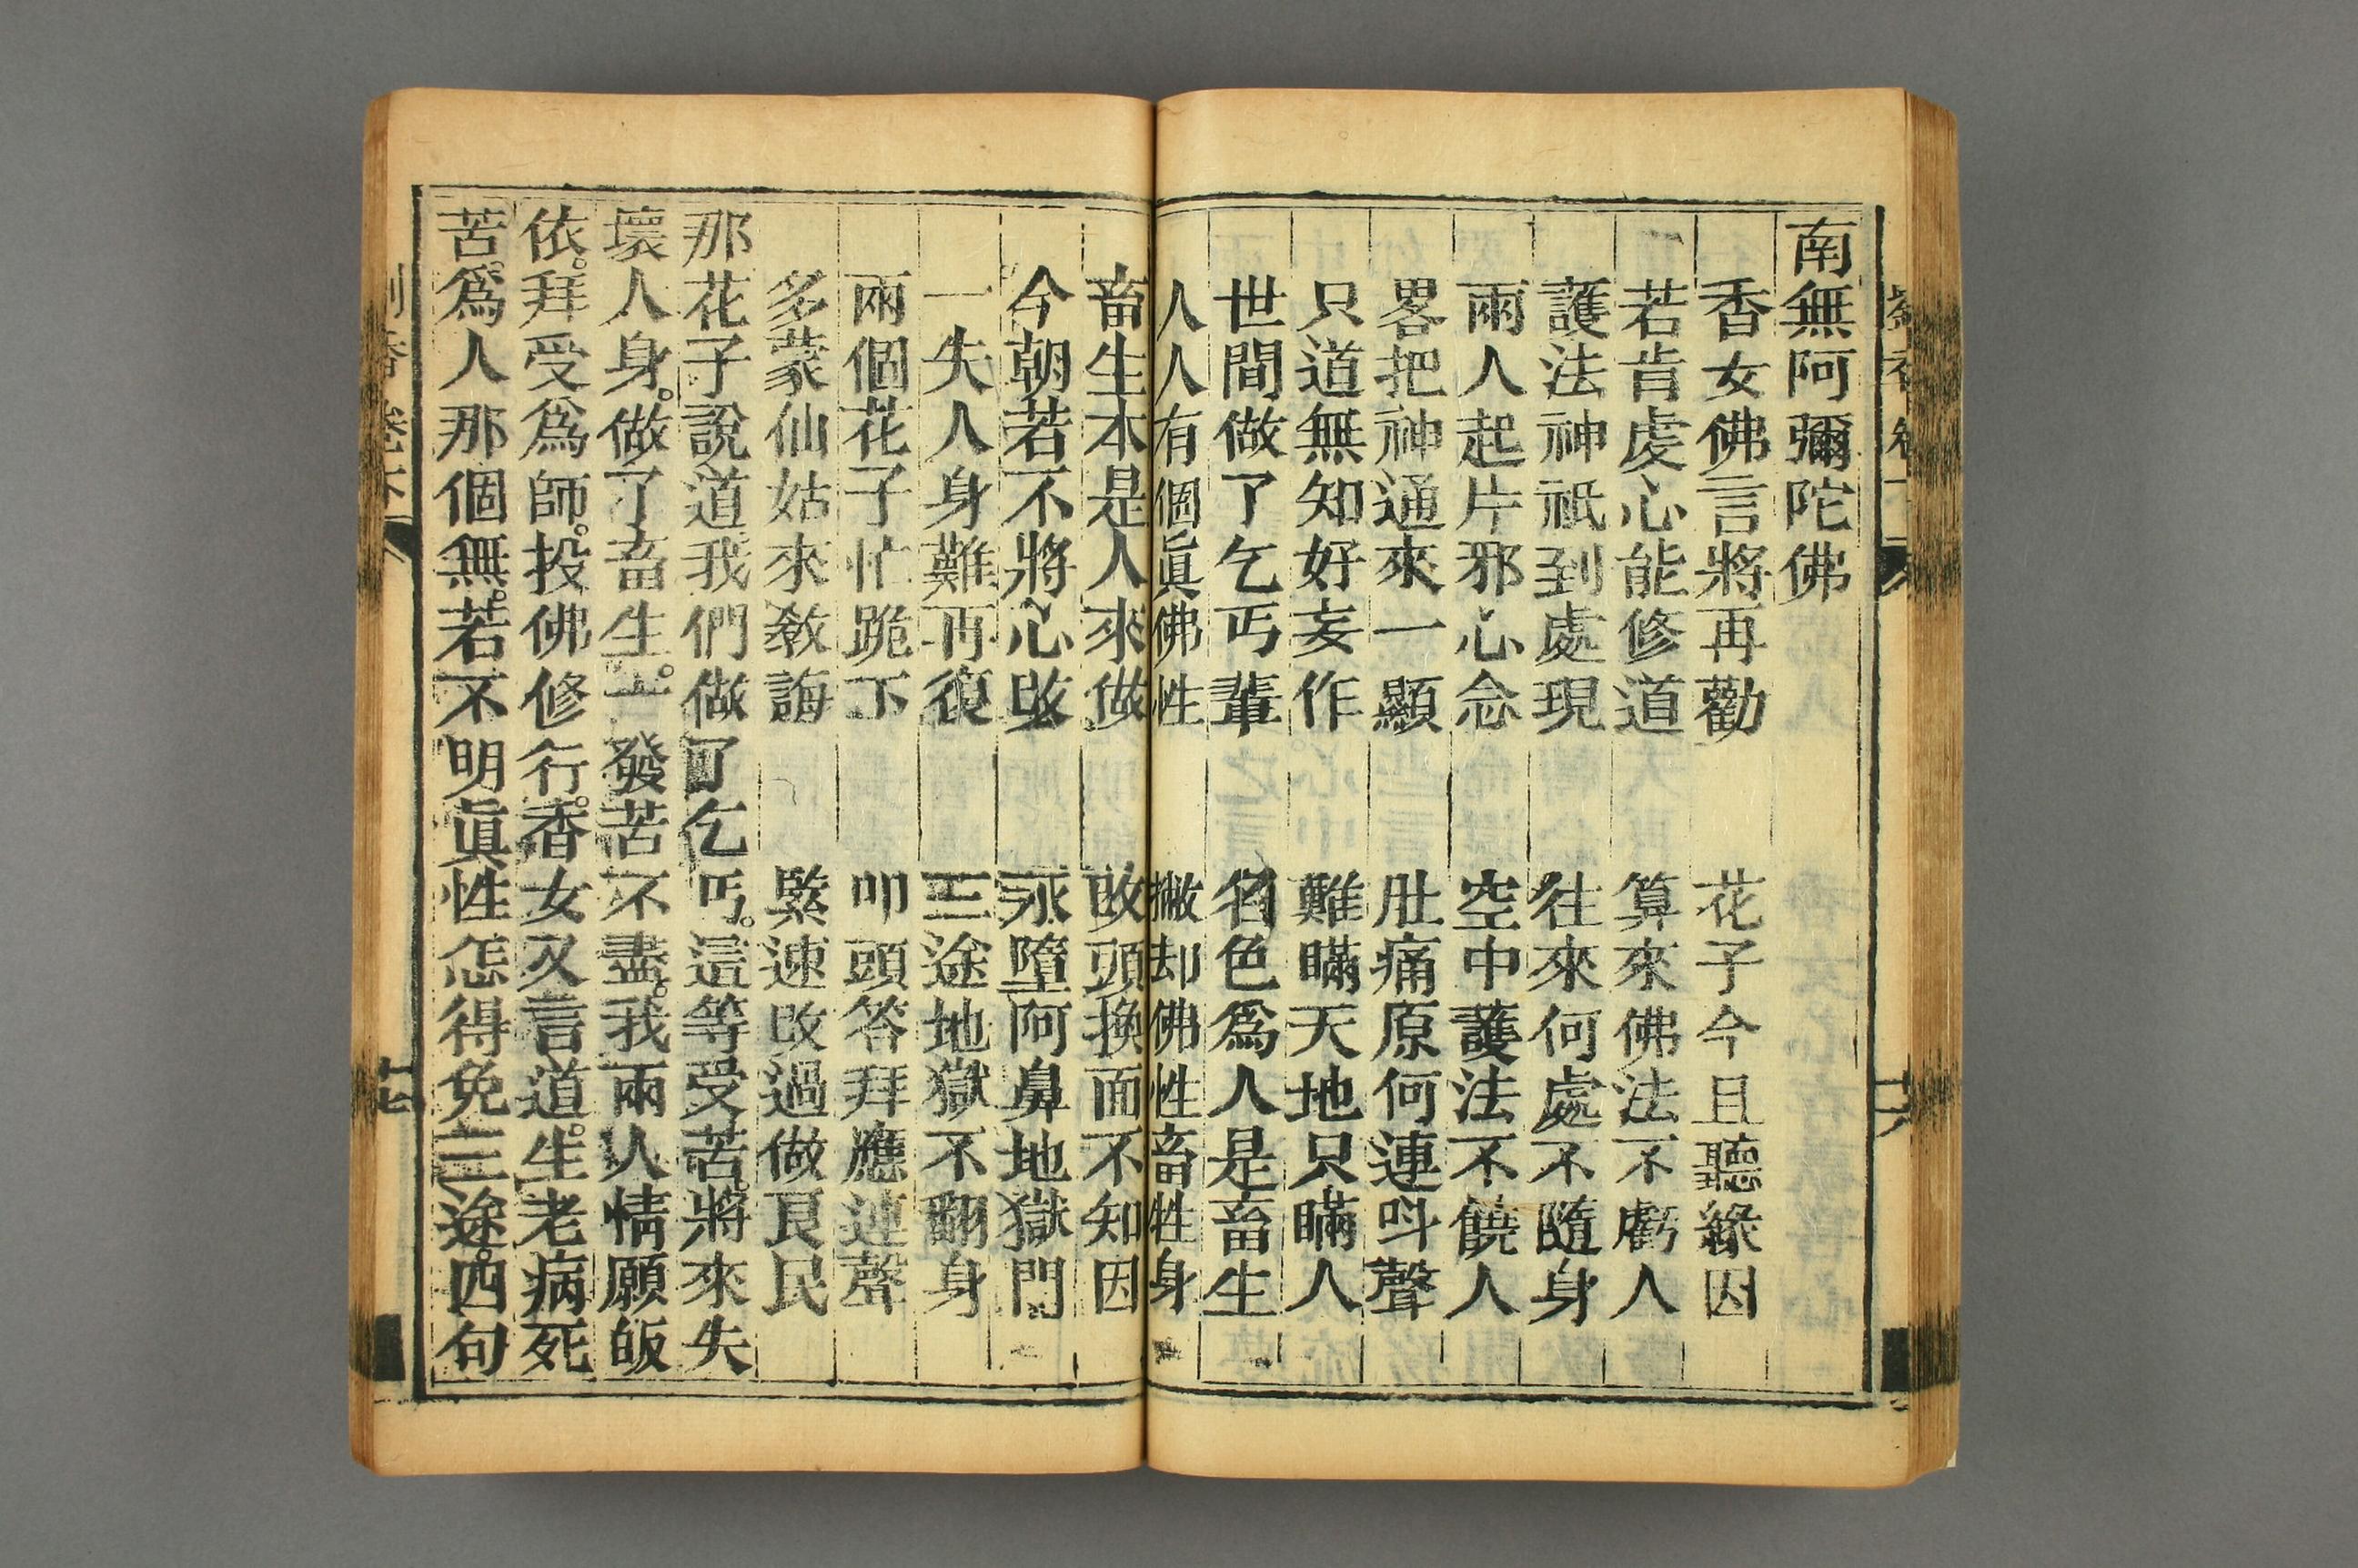 南無阿彌陀佛
香女佛言將再勸　花子今且聽緣因
若肯虔心能修道　算來佛法不虧人
護法神祇到處現　往來何處不隨身
兩人起片邪心念　空中護法不饒人
畧把神通來一顯　肚痛原何連呌聲
只道無知好妄作　難瞞天地只瞞人
世間做了乞丐輩　名色爲人是畜生
人人有個眞佛性　撇却佛性畜牲身
畜生本是人來做　改頭換面不知因
今朝若不將心改　永墮阿鼻地獄門
一失人身難再復　三途地獄不翻身
兩個花子忙跪下　叩頭答拜應連聲
多蒙仙姑來教誨　緊速改過做良民
那花子說道我們做了乞丐。這等受苦。將來失
壞人身。做了畜生。一發苦不盡。我兩人情願皈
依。拜受爲師。投佛修行。香女又言道。生老病死
苦。爲人那個無。若不明眞性怎得免三途。四句
卷下
十七
十六